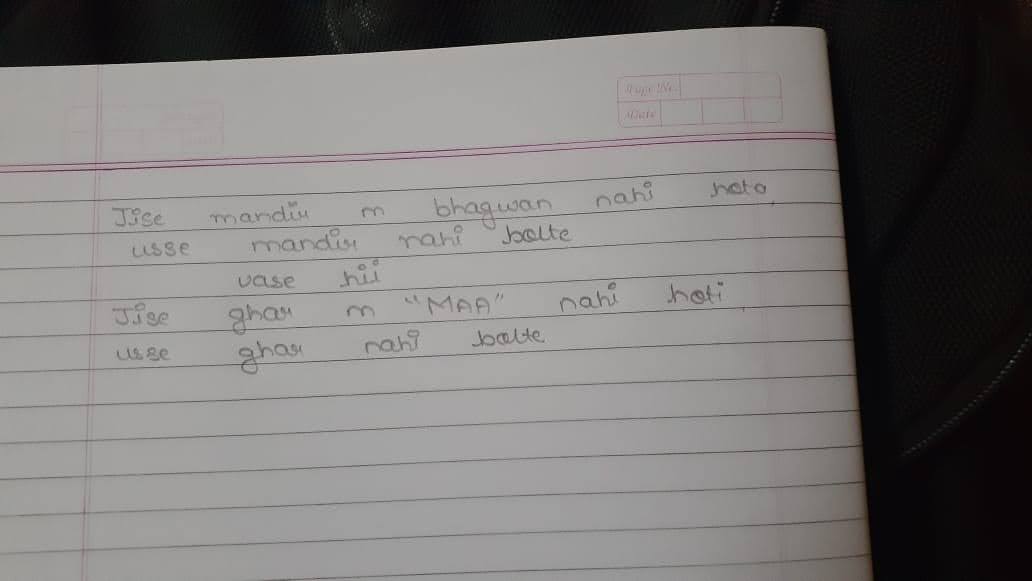 Page No.
Date
Jise mandir m bhagwan nahi hota
usse mandir nahi bolte
vase hii
Jise ghar m "MAA" nahi hoti
usse ghar nahi bolte